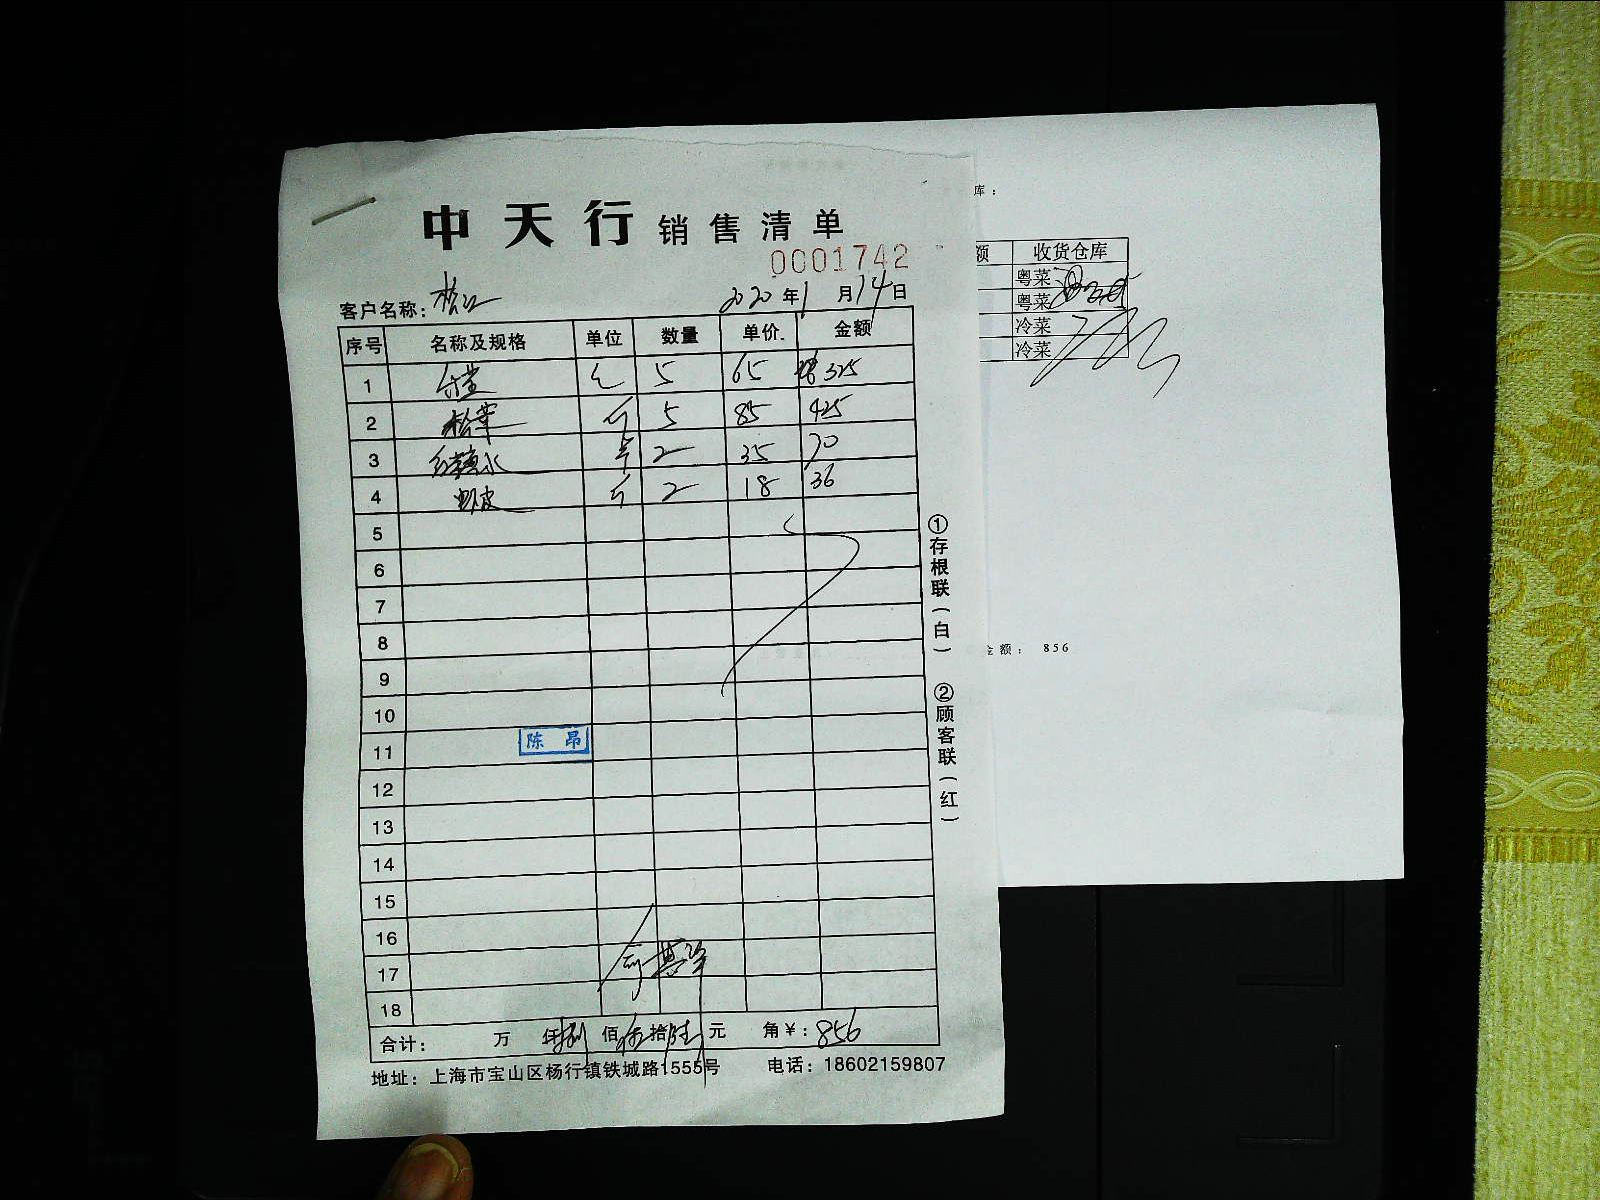 中天行 销售清单
0001742
客户名称：松江 2020年1月14日
序号 名称及规格 单位 数量 单价 金额
1 5 65 325
2 松茸 斤 5 85 425
3 2 35 70
4 虾皮 斤 2 18 36
5
6
7
8
9
10
11 陈昂
12
13
14
15
16
17
18
合计： 万 仟捌佰伍拾陆元 角¥：856
地址：上海市宝山区杨行镇铁城路1555号 电话：18602159807
①存根联（白） ②顾客联（红）
库：
额 收货仓库
粤菜
粤菜
冷菜
冷菜
金额： 856